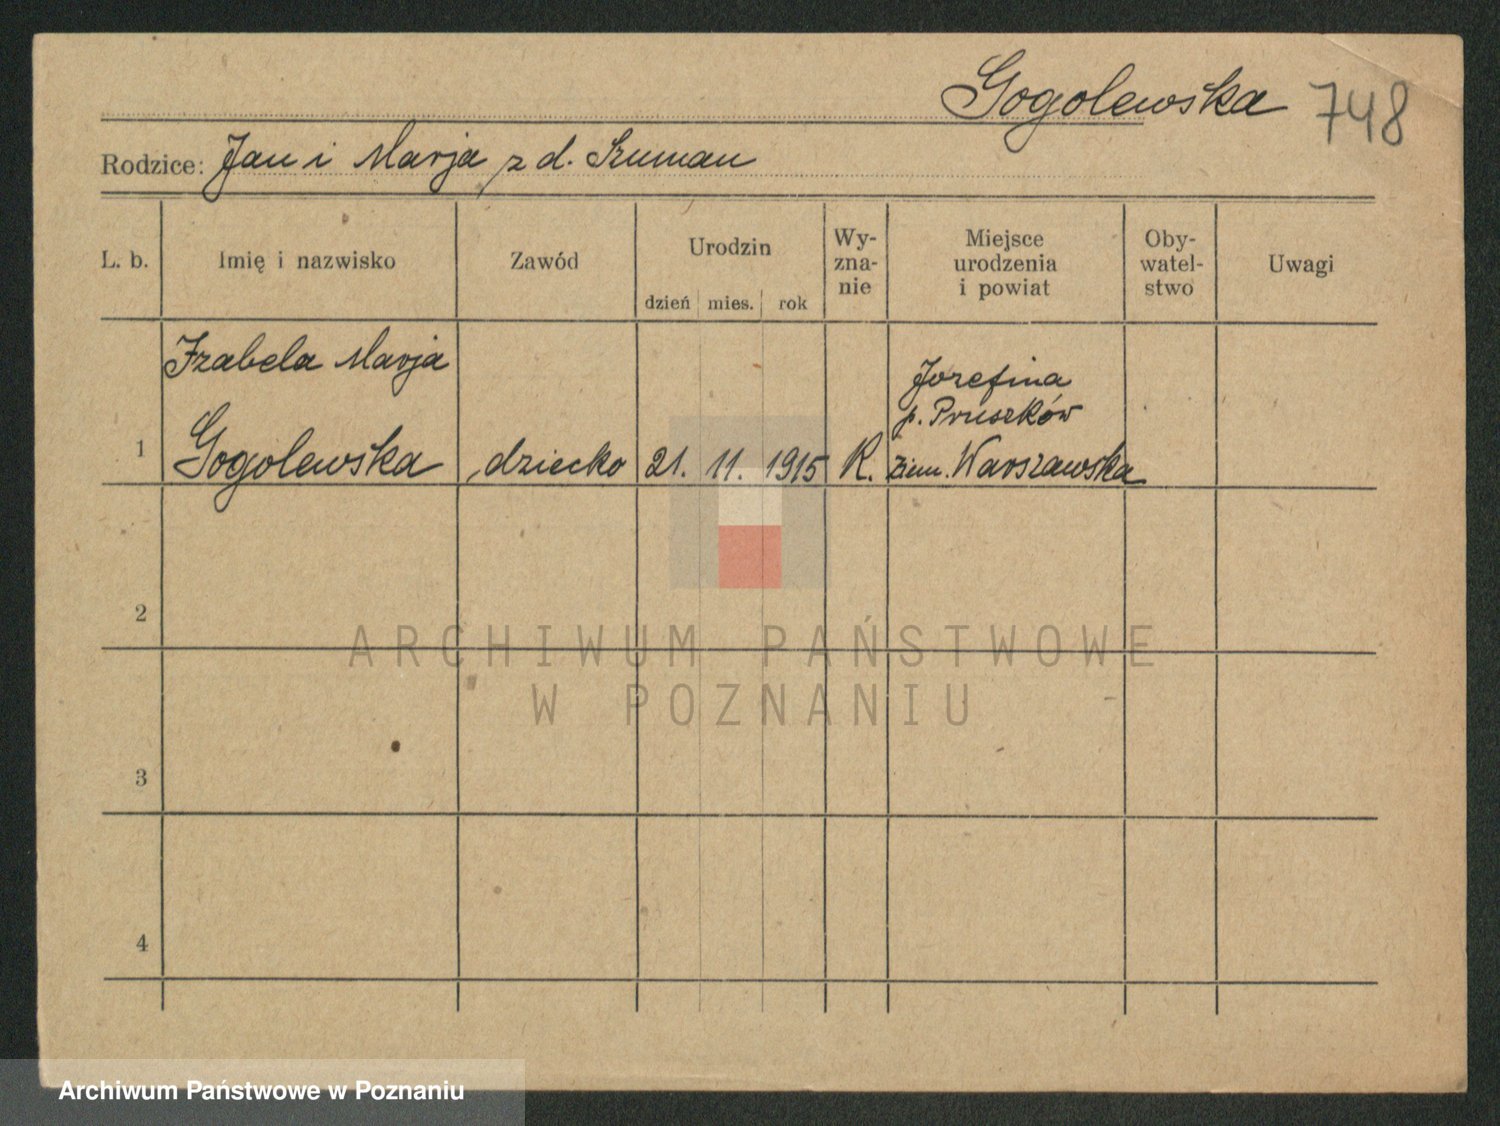 Gogolewska 748
Rodzice: Jan i Marja z d. Szuman
L. b. Imię i nazwisko Zawód Urodzin dzień mies. rok Wy-zna-nie Miejsce urodzenia i powiat Oby-watel-stwo Uwagi
Izabela Marja
Józefina
p. Pruszków
1 Gogolewska dziecko 21. 11. 1915 R. ziem. Warszawska
2
ARCHIWUM PAŃSTWOWE
W POZNANIU
3
4
Archiwum Państwowe w Poznaniu